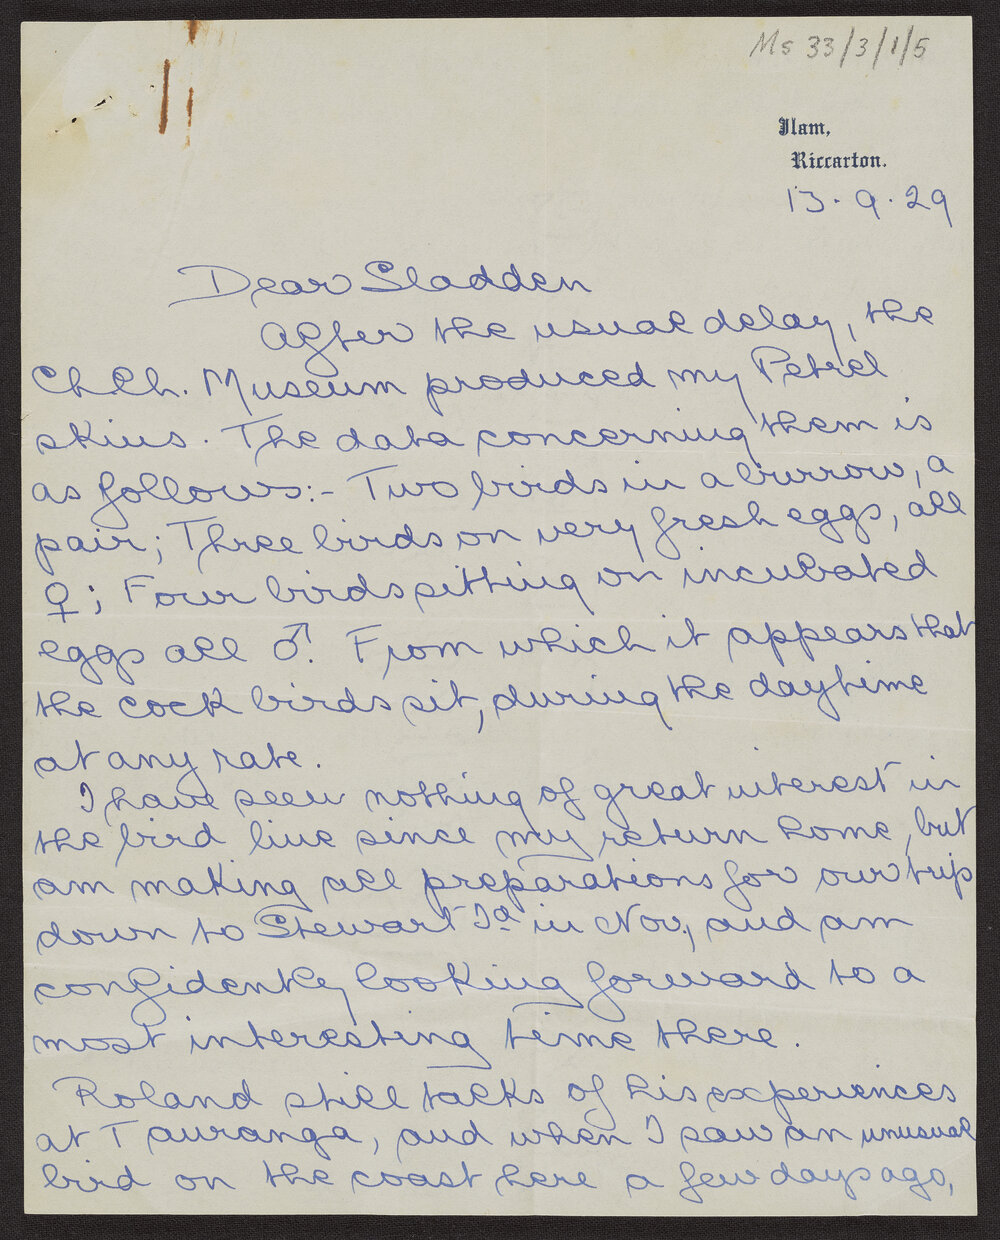 Ms 33/3/1/5
Ilam,
Riccarton.
13.9.29
Dear Sladden
After the usual delay, the
Ch.Ch. Museum produced my Petrel
skins. The data concerning them is
as follows:- Two birds in a burrow, a
pair; Three birds on very fresh eggs, all
♀; Four birds sitting on incubated
eggs all ♂. From which it appears that
the cock birds sit, during the daytime
at any rate.
I have seen nothing of great interest in
the bird line since my return home, but
am making all preparations for our trip
down to Stewart Id in Nov, and am
confidently looking forward to a
most interesting time there.
Roland still talks of his experiences
at Tauranga, and when I saw an unusual
bird on the coast here a few days ago,